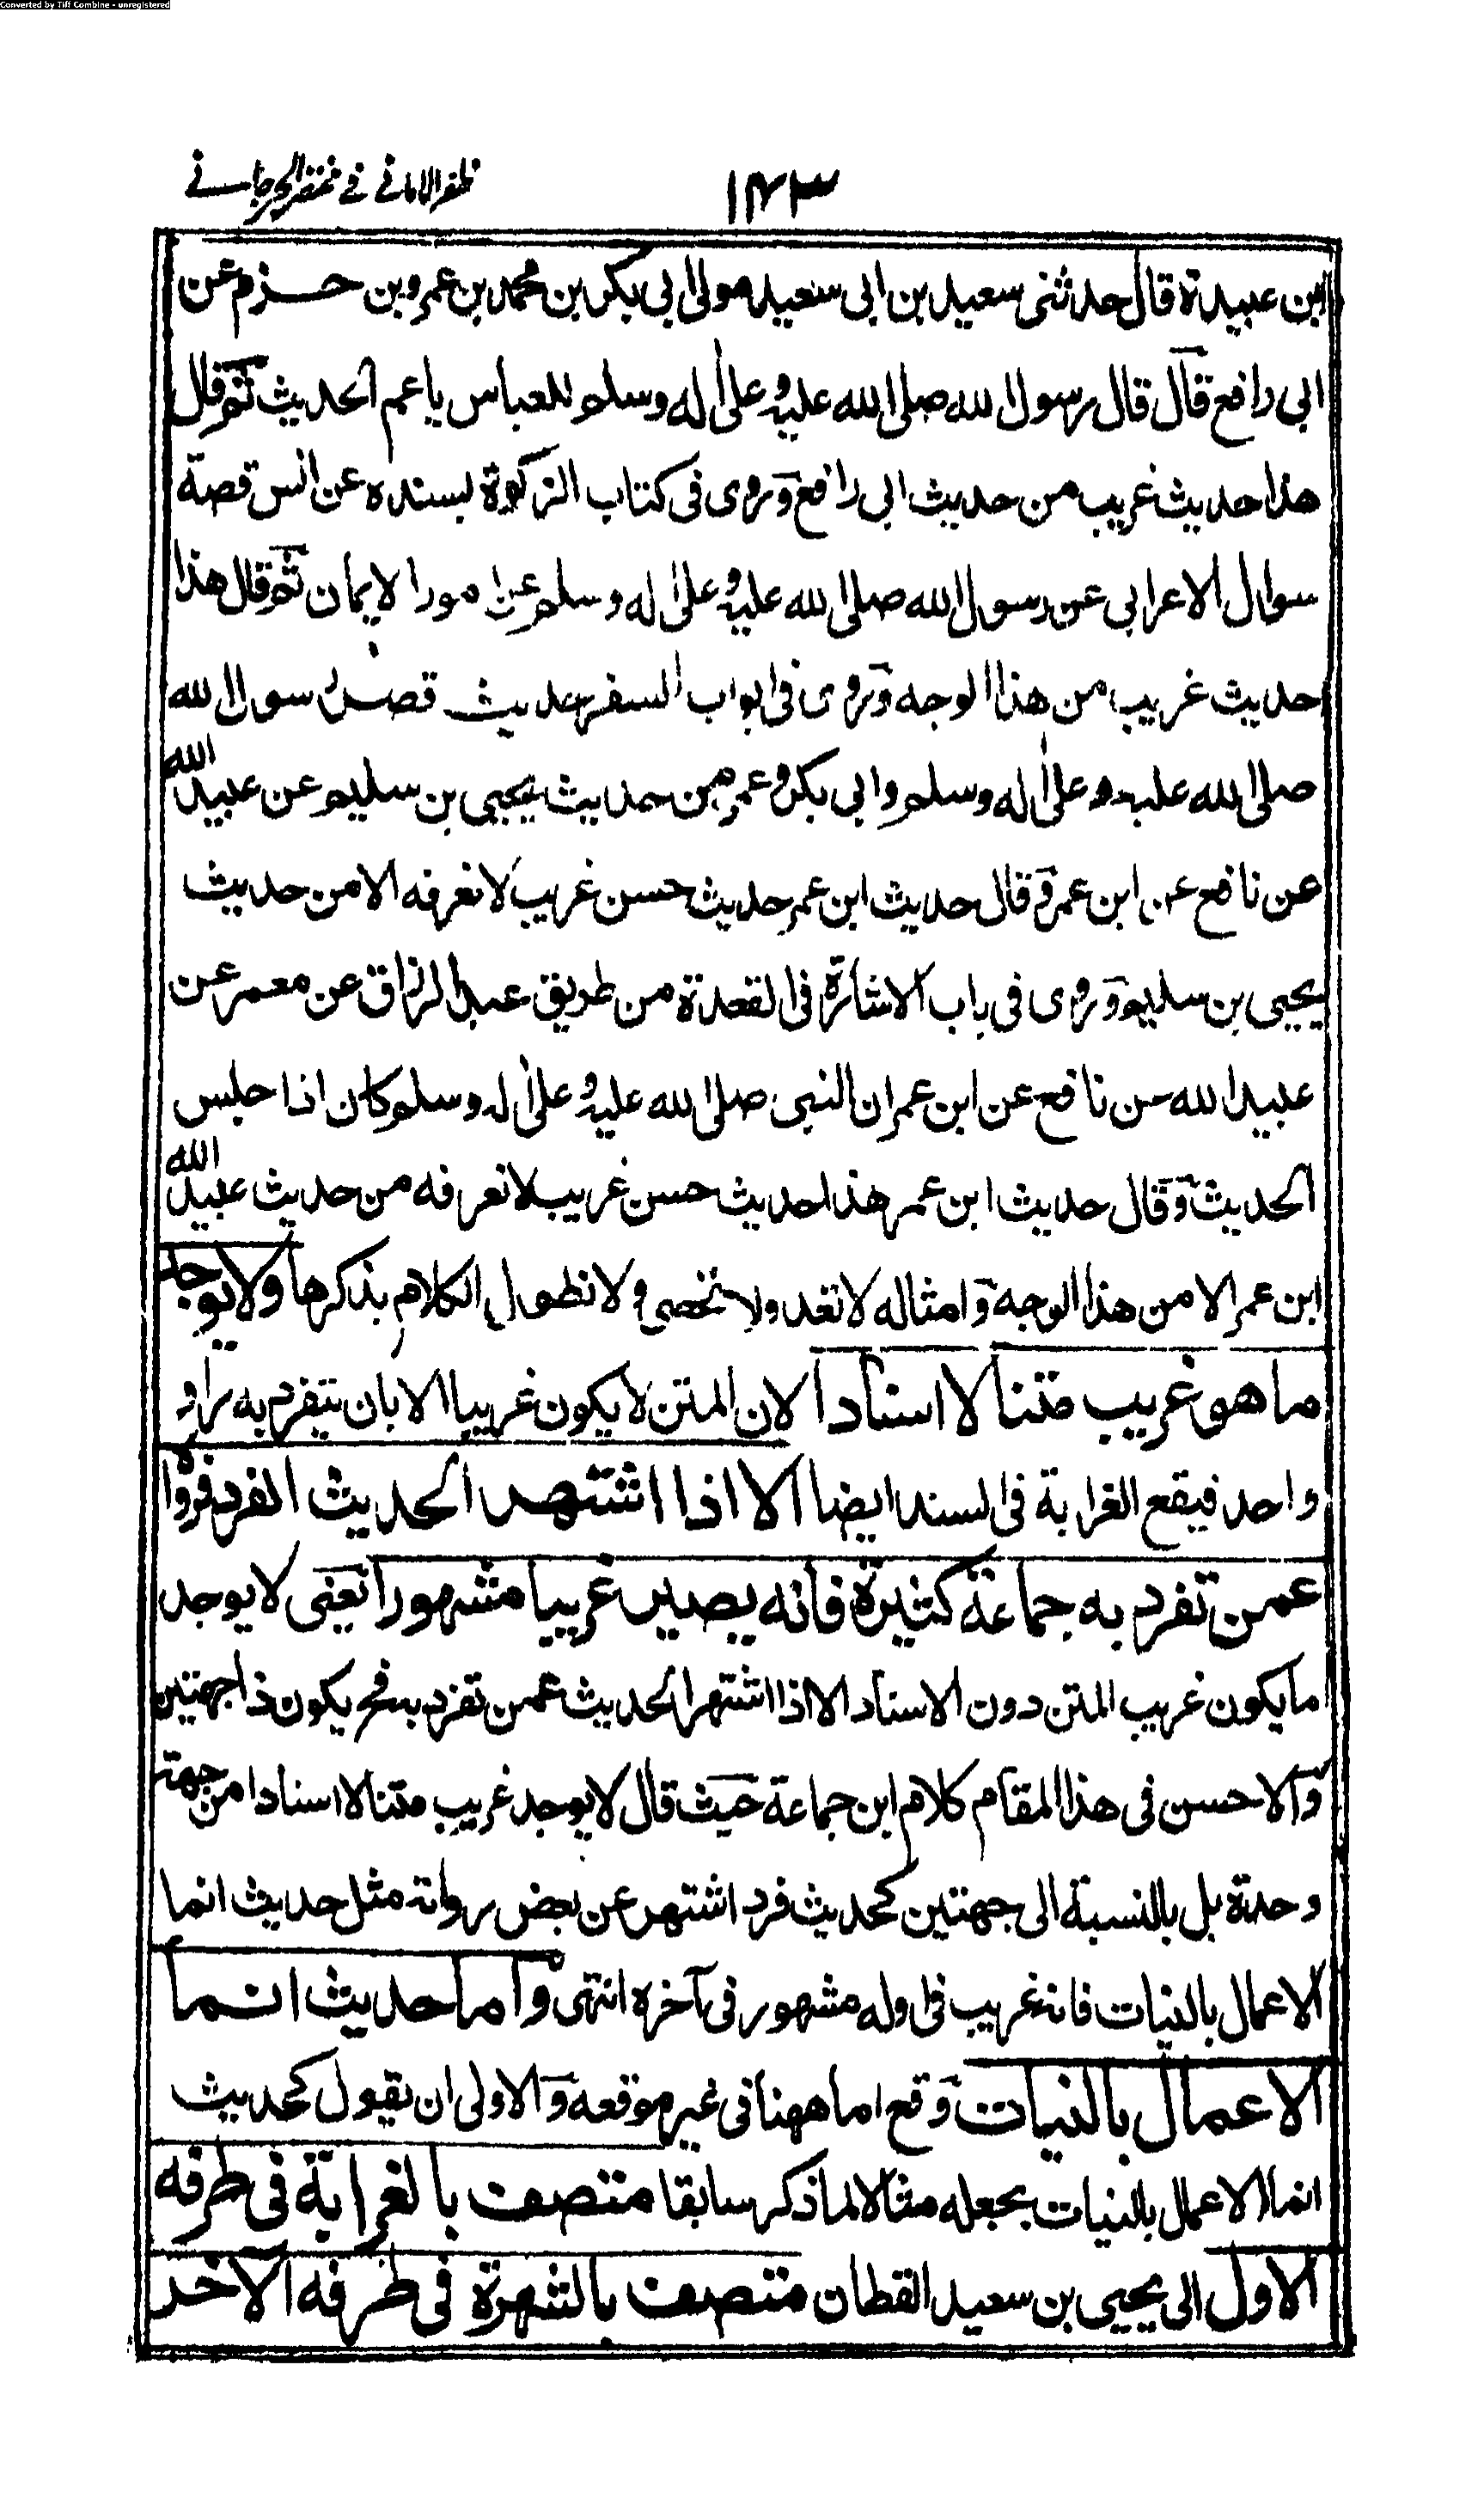 Converted by Tiff Combine - unregistered
ظفر الامانے فے مختصر الجرجانے
١٤٣
ابن عبيدة قال حدثنى سعيد بن ابى سعيد مولى ابى بكر بن محمد بن عمرو بن حزم عن
ابى رافع قال قال رسول الله صلى الله عليه وعلى اٰله وسلم للعباس ياعم الحديث ثم قال
هذا حديث غريب من حديث ابى رافع وروى فى كتاب الزكوة بسنده عن انس قصة
سوال الاعرابى عن رسول الله صلى الله عليه وعلى اٰله وسلم عن امور الايمان ثم قال هذا
حديث غريب من هذا الوجه وروى فى ابواب السفر حديث قصر رسول الله
صلى الله عليه وعلى اٰله وسلم وابى بكر وعمر من حديث يحيى بن سليم عن عبيد الله
عن نافع عن ابن عمر وقال حديث ابن عمر حديث حسن غريب لا نعرفه الا من حديث
يحيى بن سليم وروى فى باب الاشارة فى القعدة من طريق عبد الرزاق عن معمر عن
عبيد الله عن نافع عن ابن عمر ان النبى صلى الله عليه وعلى اٰله وسلم كان اذا جلس
الحديث وقال حديث ابن عمر هذا حديث حسن غريب لا نعرفه من حديث عبيد الله
ابن عمر الا من هذا الوجه وامثاله لا تعد ولا تحصى ولا نطول الكلام بذكرها ولا يوجد
ما هو غريب متنا لا اسنادا لان المتن لا يكون غريبا الا بان يتفرد به راو
واحد فيقع الغرابة فى السند ايضا الا اذا اشتهر الحديث الفرد فرواه
عمن تفرد به جماعة كثيرة فانه يصير غريبا مشهورا يعنى لا يوجد
ما يكون غريب المتن دون الاسناد الا اذا اشتهر الحديث عمن تفرد به فح يكون ذا جهتين
والاحسن فى هذا المقام كلام ابن جماعة حيث قال لا يوجد غريب متنا لا اسنادا من جهة
وحدة بل بالنسبة الى جهتين كحديث فرد اشتهر عن بعض رواته مثل حديث انما
الاعمال بالنيات فانه غريب فى اوله مشهور فى آخره انتهى واما حديث انما
الاعمال بالنيات وقع اما ههنا فى غير موقعه والاولى ان يقول كحديث
انما الاعمال بالنيات بجعله مثالا لما ذكر سابقا متصف بالغرابة فى طرفه
الاول الى يحيى بن سعيد القطان متصف بالشهرة فى طرفه الاخر